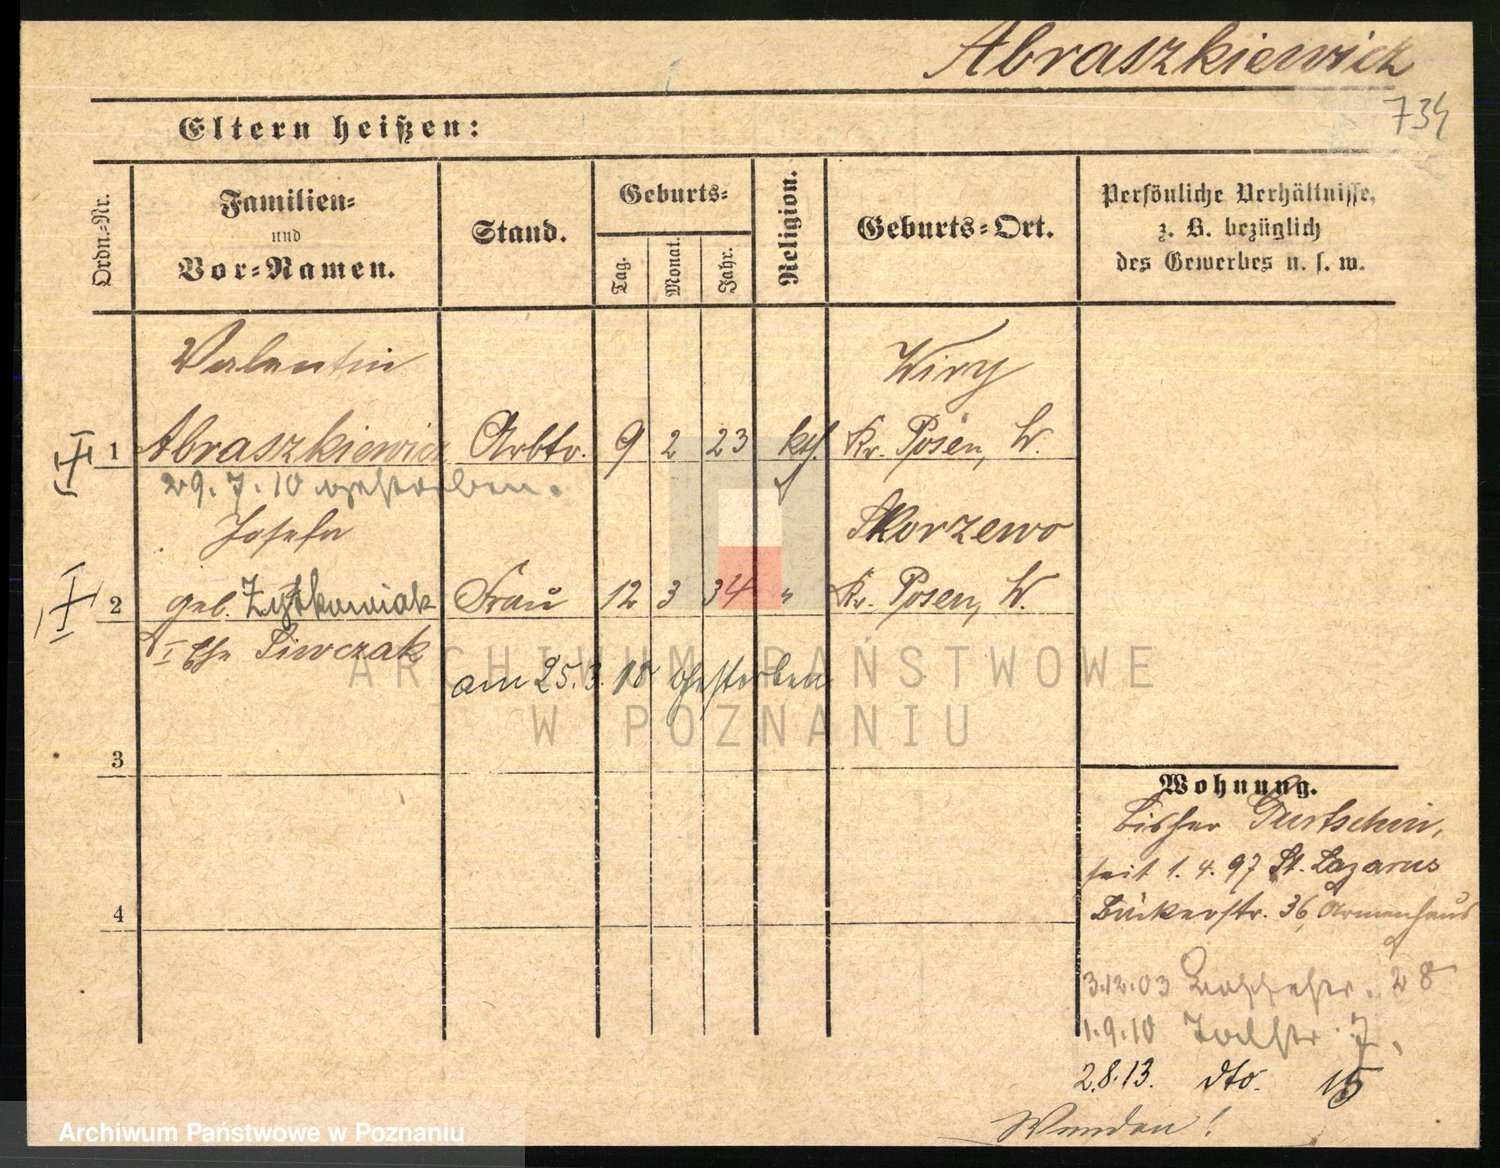 Abraszkiewicz
734
Eltern heißen:
Ordn.-Nr.
Familien-
und
Vor-Namen.
Stand.
Geburts-
Tag.
Monat.
Jahr.
Religion.
Geburts-Ort.
Persönliche Verhältnisse,
z. B. bezüglich
des Gewerbes u. s. w.
Valentin Wiry
1 Abraszkiewicz Arbtr. 9 2 23 kth. Kr. Posen, W.
29.7.10 gestorben.
Josefa Skorzewo
2 geb. Zytkowiak Frau 12 3 34 " Kr. Posen, W.
I Ehe Siwczak
am 25.3.10 gestorben
3
4
Wohnung.
bisher Gurtschin,
seit 1.4.97 St. Lazarus
Bäckerstr. 36, Armenhaus
3.12.03 28
1.9.10 7.
2.8.13. dto. 15
Wenden!
ARCHIWUM PAŃSTWOWE
W POZNANIU
Archiwum Państwowe w Poznaniu